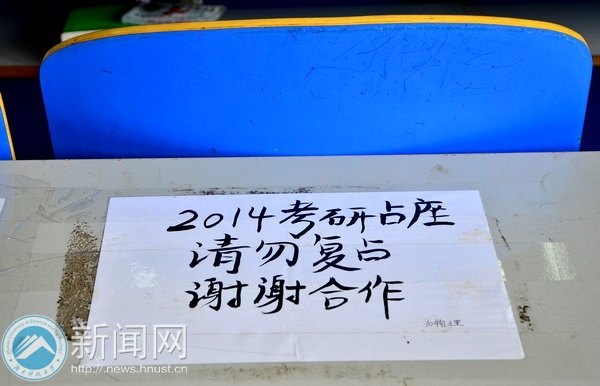 2014考研占座
请勿复占
谢谢合作
新闻网
http://news.hnust.cn